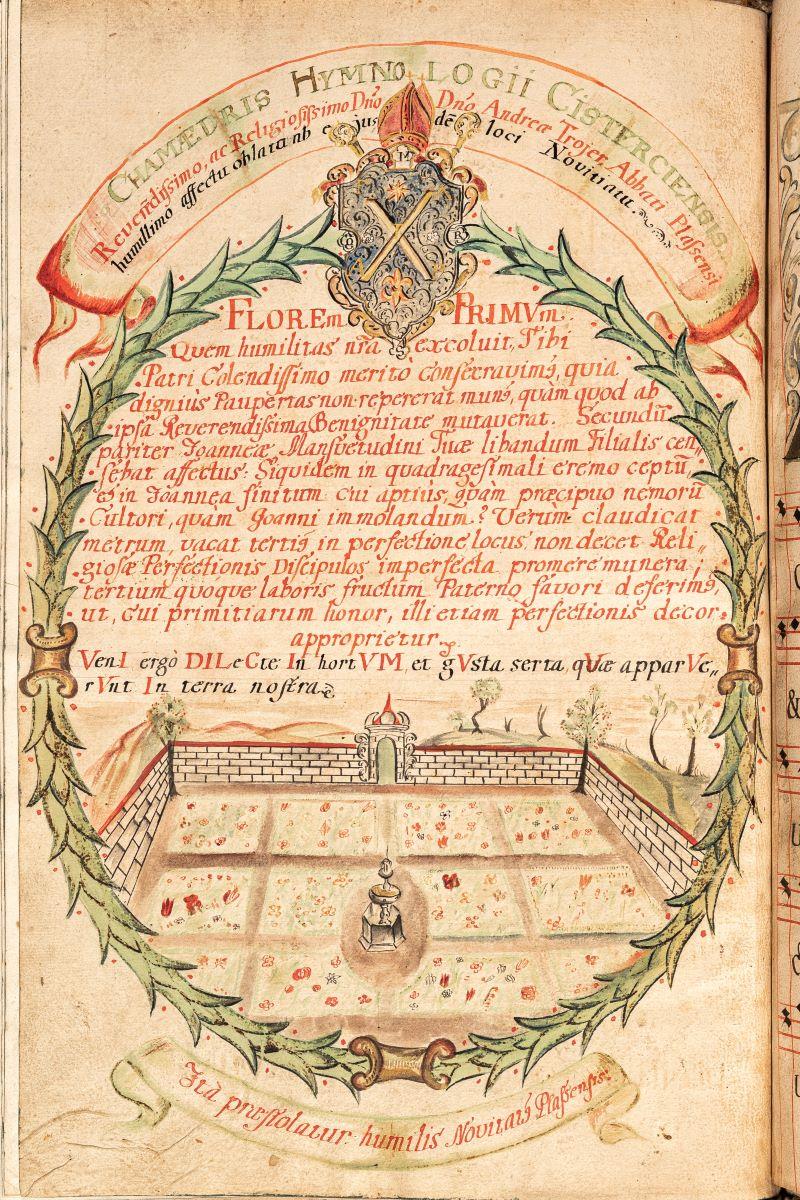 CHAMÆDRIS HYMNOLOGII CISTERCIENSIS
Reverendissimo, ac Religiosissimo Dn̄o Dn̄o Andreæ Trojer Abbati Plassensi
humillimo affectu oblata ab ejusdē loci Novitiatu.
M
FLOREm PRIMVm.
Quem humilitas nr̄a excoluit, Tibi
Patri Colendissimo merito consecravimꝰ, quia
dignius Paupertas non repererat munꝰ, quàm quod ab
ipsâ Reverendissima Benignitate mutaverat. Secundū
pariter Joanneæ Mansvetudini Tuæ libandum Filialis cen„
sebat affectus: Siquidem in quadragesimali eremo ceptū,
et in Joannea finitum cui aptiùs, quàm præcipuo nemorū
Cultori, quàm Joanni immolandum? Verùm claudicat
metrum, vacat tertiꝰ in perfectione locus, non decet Reli„
giosæ Perfectionis Discipulos imperfecta promere munera;
tertium quoque laboris fructum Paterno favori deferimꝰ,
ut, cui primitiarum honor, illi etiam perfectionis decor
approprietur.
VenI ergò DILeCte In hortVM, et gVsta serta, qVæ apparVe„
rVnt In terra nostra.
Ita præstolatur humilis Novitatꝰ Plassensis.